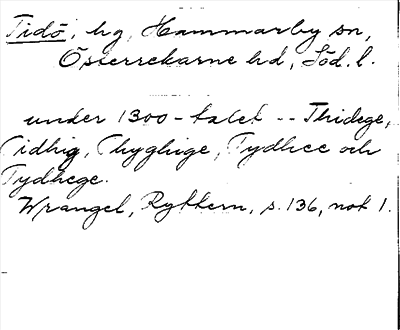 Tidö, hg, Hammarby sn,
Österrekarne hd, Söd. l.
under 1300-talet -- Thidege,
Tidhig, Thyghige, Tydhee och
Tydhege.
Wrangel, Ryttern, s. 136, not 1.